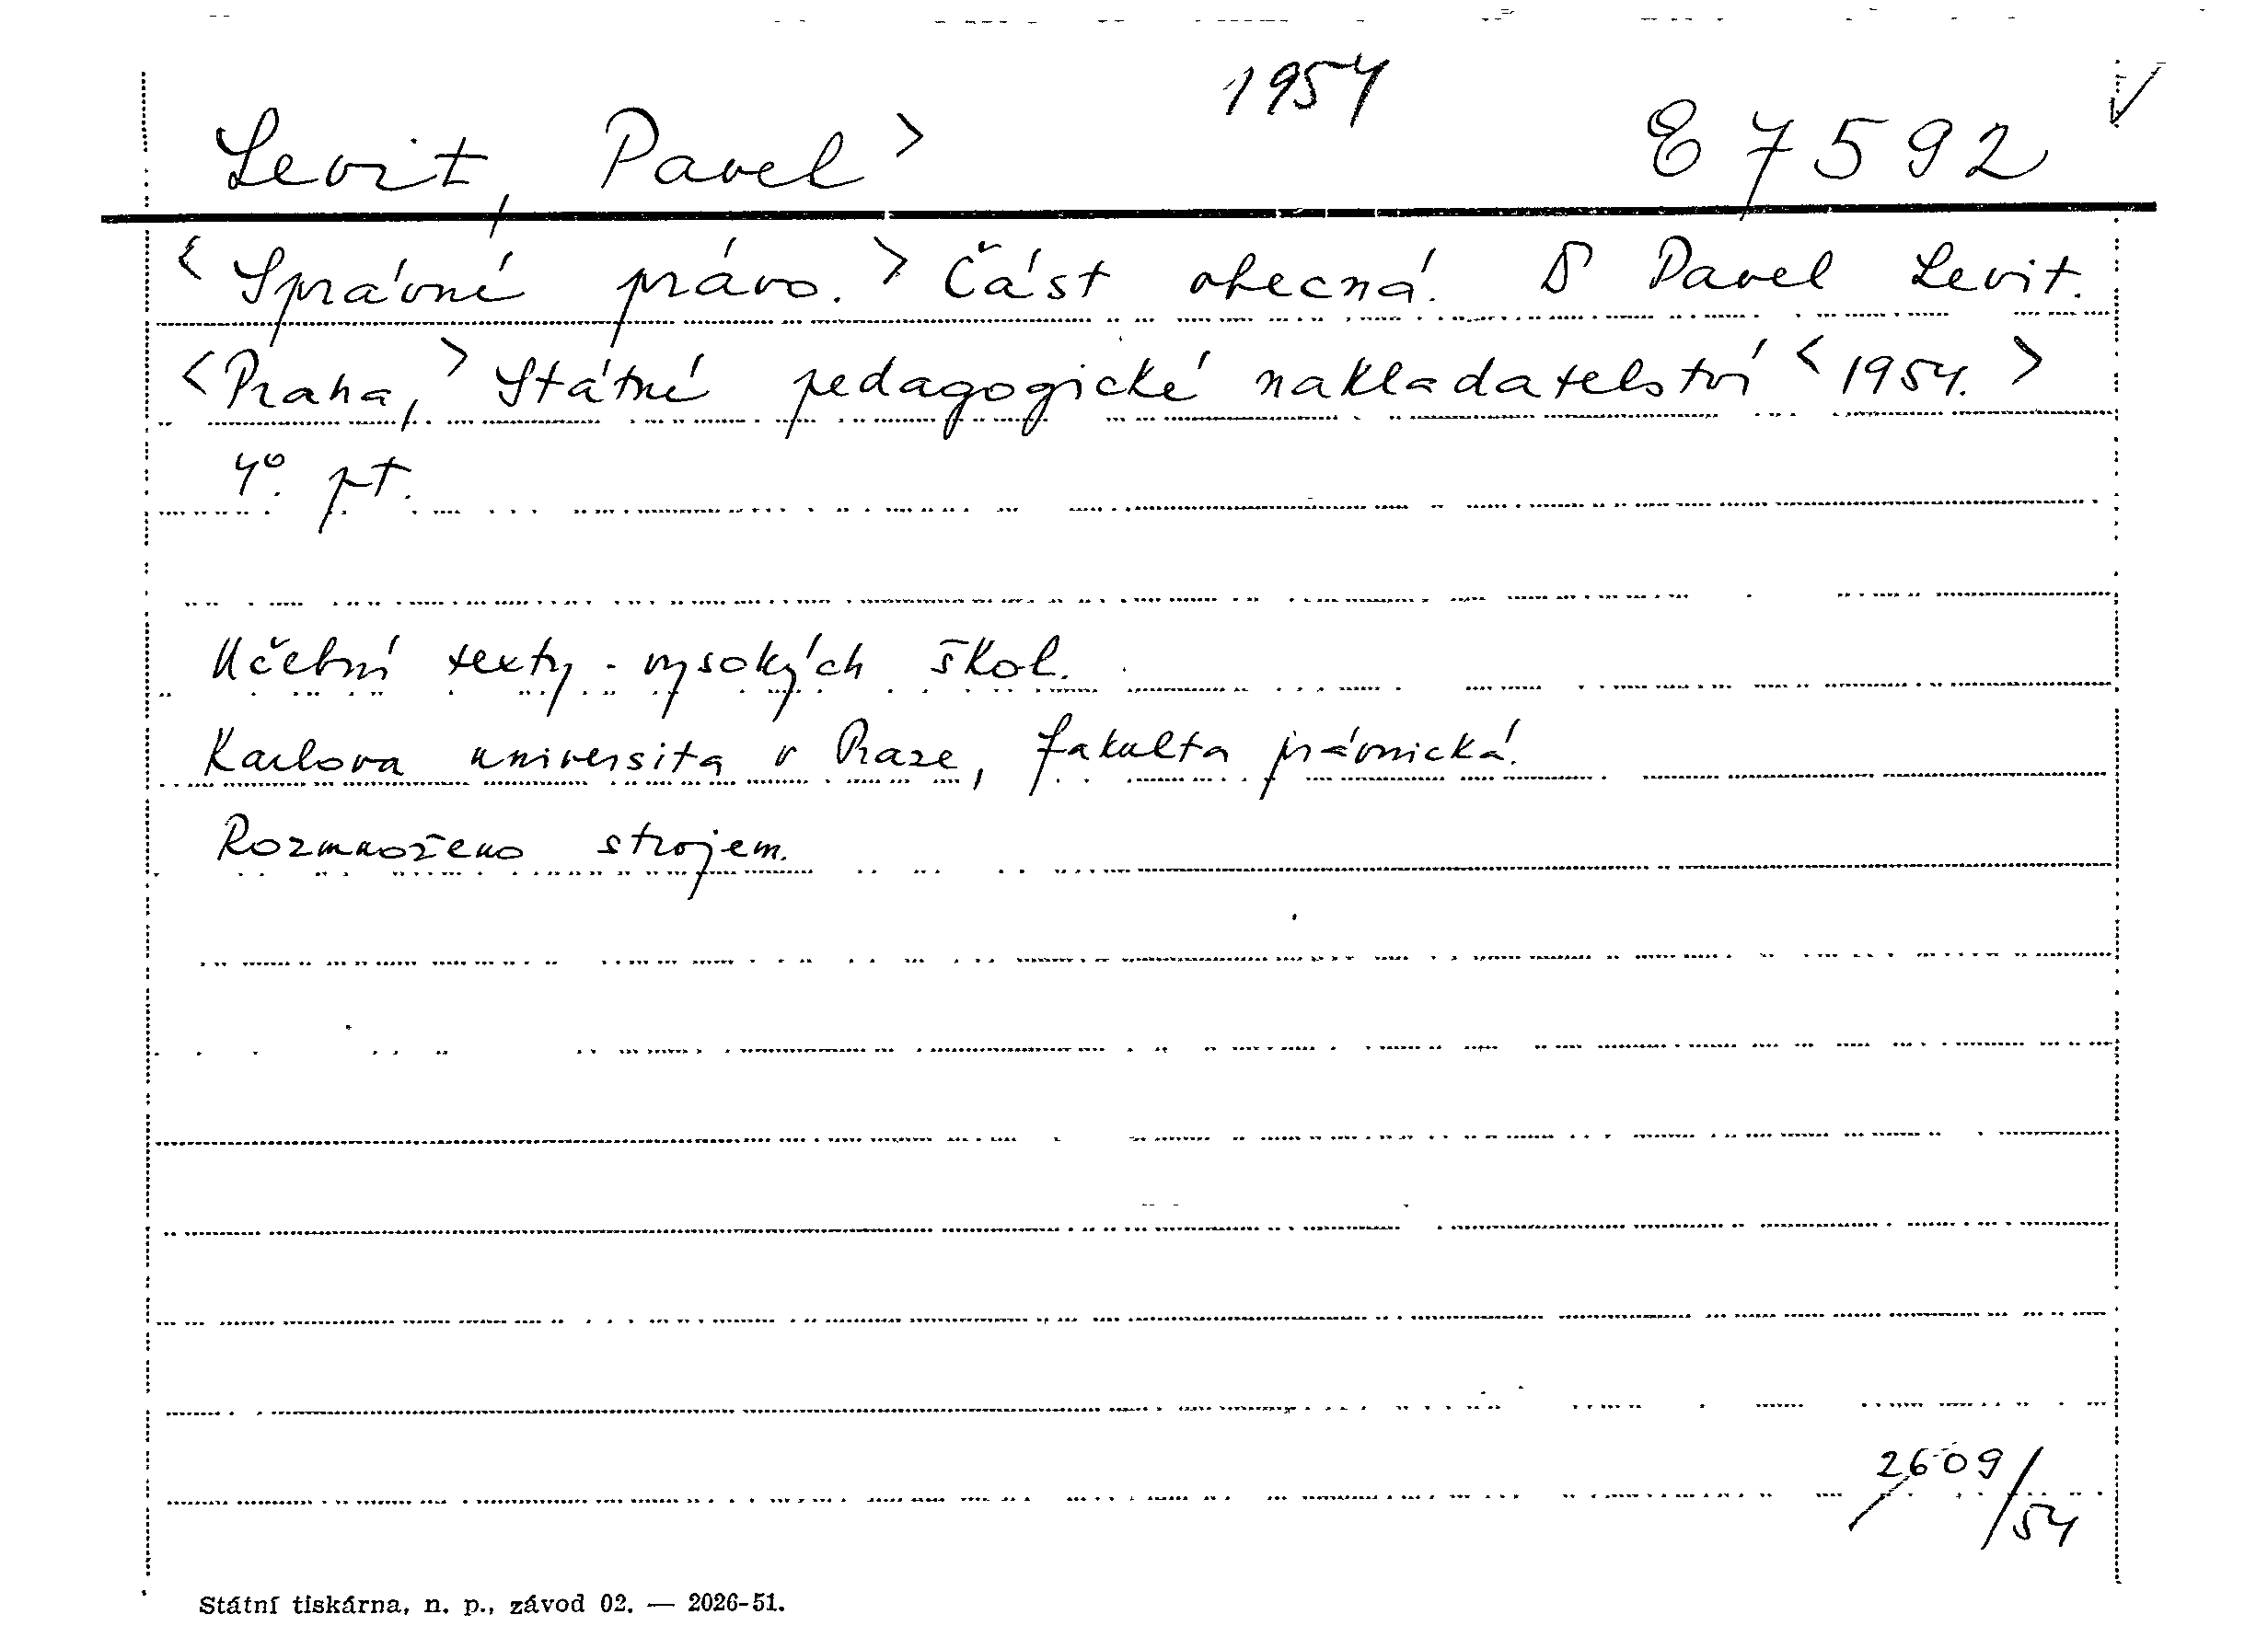 1954
Levit, Pavel> E 7592
<Správní právo.> Část obecná. Pavel Levit.
<Praha,> Státní pedagogické nakladatelství <1954.>
4°. pt.
Učební texty vysokých škol.
Karlova universita v Praze, fakulta právnická.
Rozmnoženo strojem.
2609/54
Státní tiskárna, n. p., závod 02. — 2026-51.